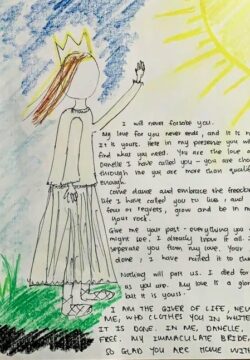 I will never forsake you.
My love for you never ends, and it is
It is yours. Here in my presence you
find what you need. You are the love
Danelle I have called you - you are
through me you are more than
enough.
Come dance and embrace the
life I have called you to live; and
fear or regrets, grow and be in
your rock.
Give me your past - everything you
might see, I already know it all.
seperate you from my love. Your
done; I have nailed it to
Nothing will part us. I died for
as you are. My love is a
but it is yours!
I AM THE GIVER OF LIFE,
ME, WHO CLOTHES YOU IN WHITE
IT IS DONE. IN ME, DANELLE,
FREE. MY IMMACULATE
SO GLAD YOU ARE HOME